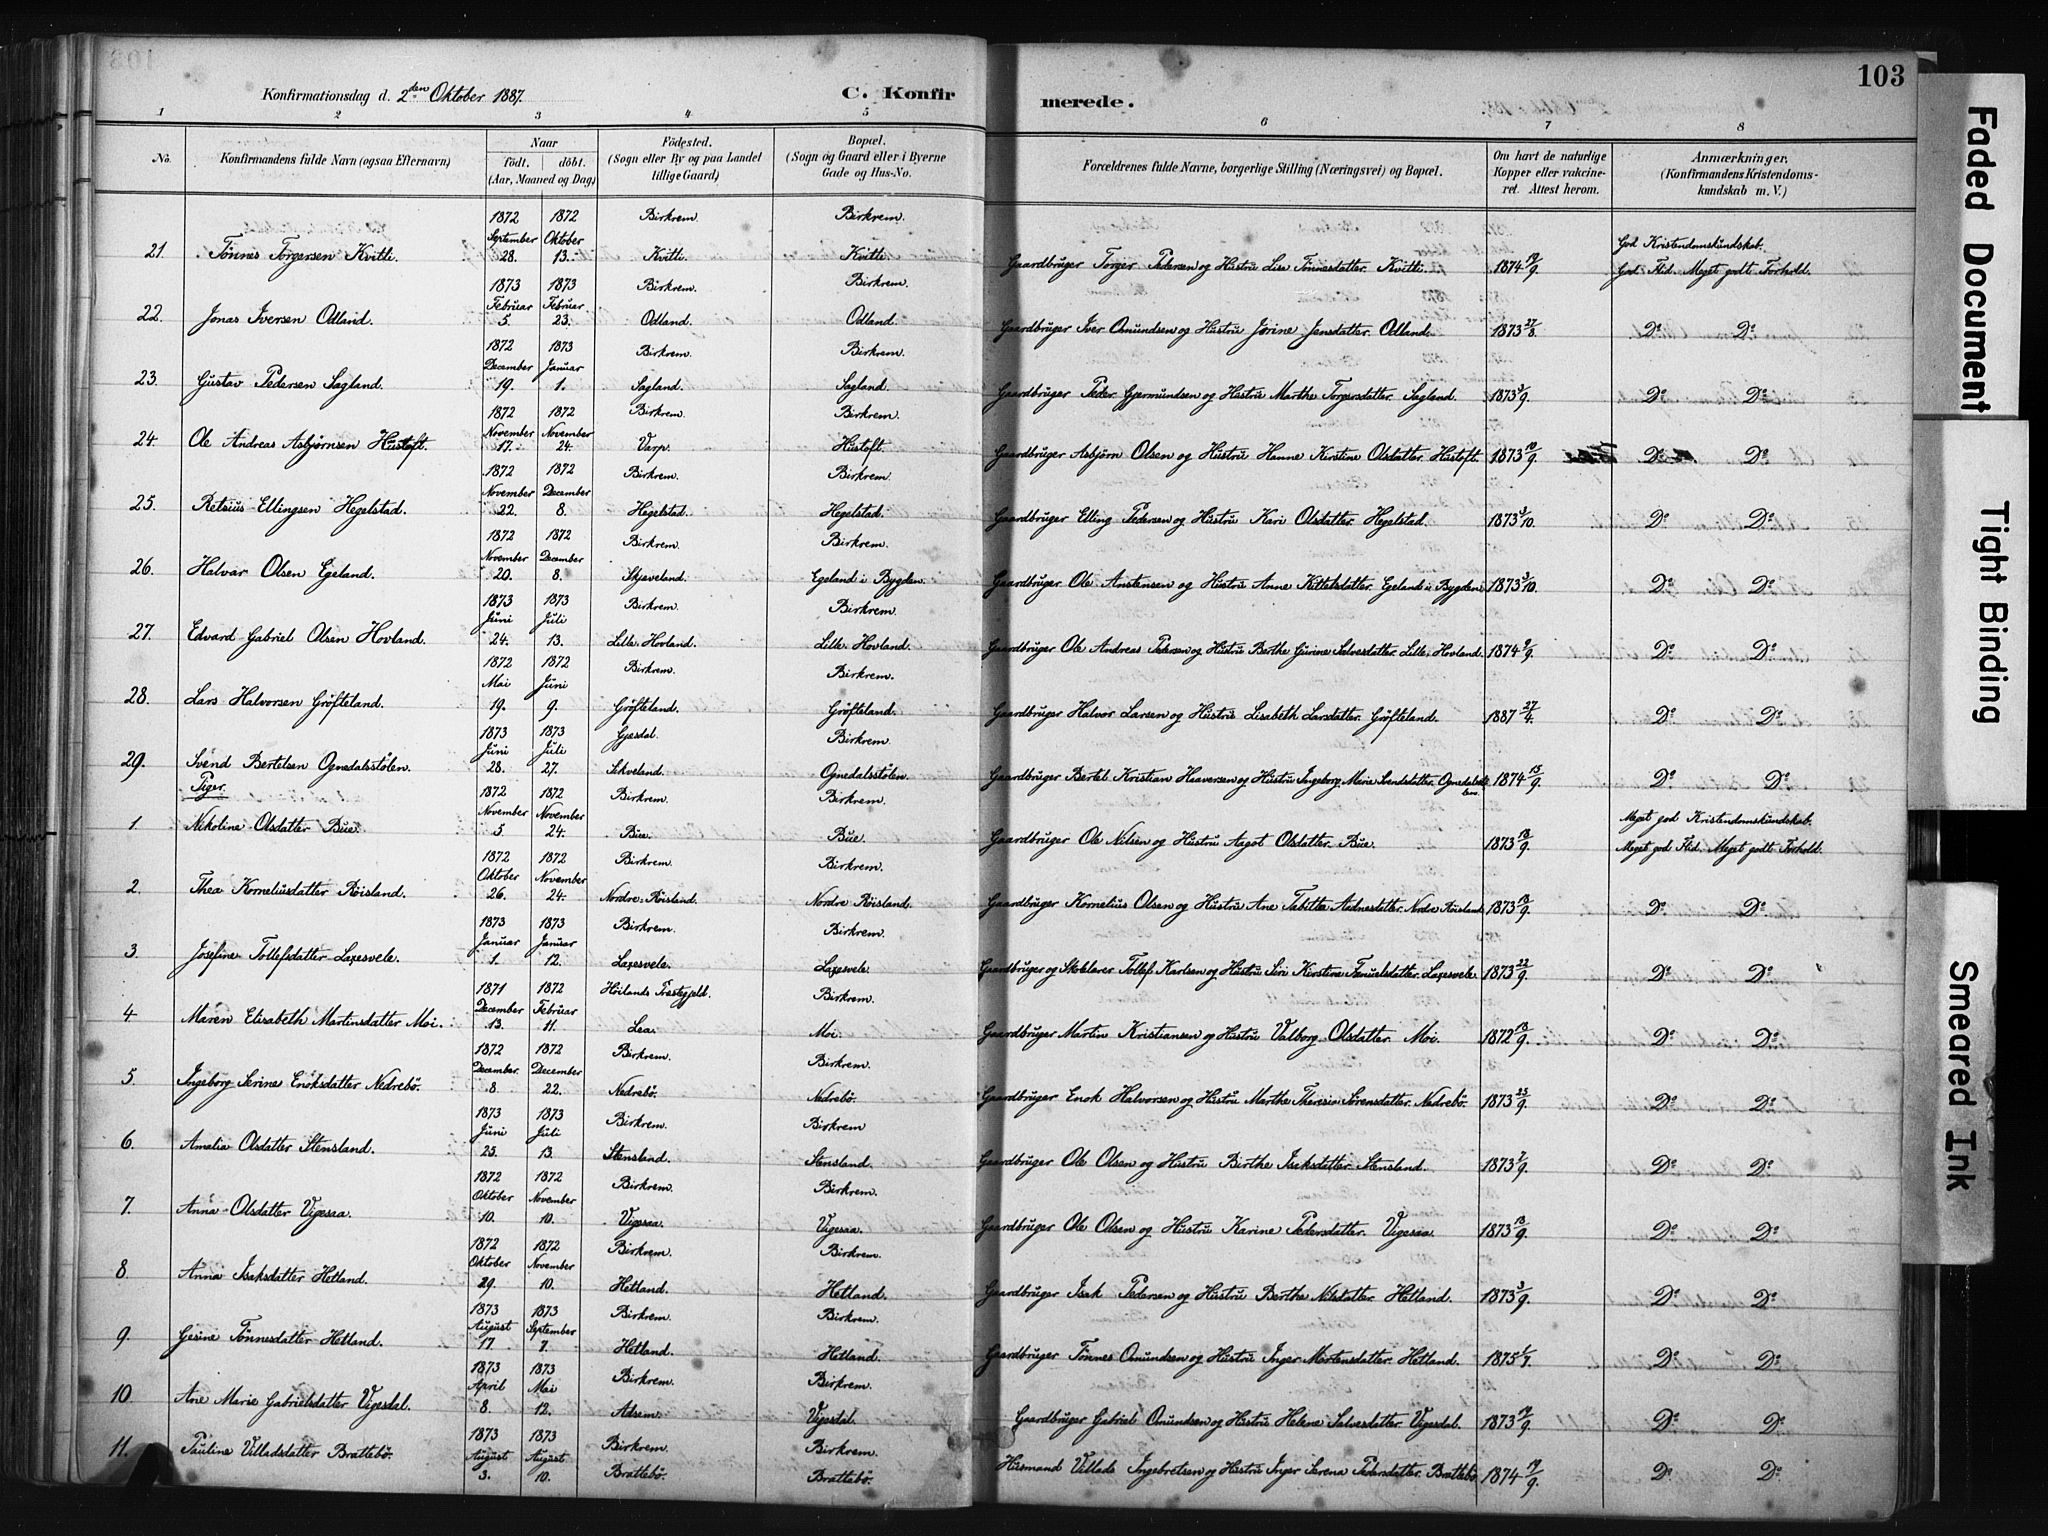 103
Konfirmationsdag d. 2den Oktober 1887. C. Konfir merede.
1 2 3 4 5 6 7 8
No. Konfirmandens fulde Navn (ogsaa Efternavn) Naar födt. döbt. (Aar, Maaned og Dag) Födested. (Sogn eller By og paa Landet tillige Gaard) Bopæl. (Sogn og Gaard eller i Byerne Gade og Hus-No. Forældrenes fulde Navne, borgerlige Stilling (Næringsvei) og Bopæl. Om havt de naturlige Kopper eller vakcineret. Attest herom. Anmærkninger. (Konfirmandens Kristendomskundskab m. V.)
1872 1872 Birkrem. Birkrem.
September Oktober God Kristendomskundskab.
21. Tønnes Torgersen Kvitli. 28. 13. Kvitli. Kvitli. Gaardbruger Torger Pedersen og Hustru Lise Tønnesdatter. Kvitli. 1874 19/9. God Flid. Meget godt Forhold.
1873 1873 Birkrem. Birkrem.
Februar Februar
22. Jonas Iversen Odland. 5. 23. Odland. Odland. Gaardbruger Iver Omundsen og Hustru Jorine Jensdatter. Odland. 1873 27/8. Do Do
1872 1873 Birkrem. Birkrem.
December Januar
23. Gustav Pedersen Sagland. 19. 1. Sagland. Sagland. Gaardbruger Peder Gjermundsen og Hustru Marthe Torgersdatter. Sagland. 1873 3/9. Do Do
1872 1872 Birkrem. Birkrem.
November November
24. Ole Andreas Asbjørnsen Hustoft. 17. 24. Varp. Hustoft. Gaardbruger Asbjørn Olsen og Hustru Hanne Kirstine Olsdatter. Hustoft. 1873 10/9. Do Do
1872 1872 Birkrem. Birkrem.
November December
25. Retsius Ellingsen Hegelstad. 22. 8. Hegelstad. Hegelstad. Gaardbruger Elling Pedersen og Hustru Kari Olsdatter. Hegelstad. 1873 3/10. Do Do
1872 1872 Birkrem. Birkrem.
November December
26. Halvar Olsen Egeland. 20. 8. Skjæveland. Egeland i Bygden. Gaardbruger Ole Anstensen og Hustru Anne Kittelsdatter. Egeland i Bygden. 1873 3/10. Do Do
1873 1873 Birkrem. Birkrem.
Juni Juli
27. Edvard Gabriel Olsen Hovland. 24. 13. Lille Hovland. Lille Hovland. Gaardbruger Ole Andreas Pedersen og Hustru Berthe Gurine Salvesdatter. Lille Hovland. 1874 9/9. Do Do
1872 1872 Birkrem. Birkrem.
Mai Juni
28. Lars Halvorsen Grøfteland. 19. 9. Grøfteland. Grøfteland. Gaardbruger Halvor Larsen og Hustru Lisabeth Larsdatter. Grøfteland. 1887 27/4. Do Do
1873 1873 Gjesdal. Birkrem.
Juni Juli
29. Svend Bertelsen Ognedalsstølen. 28. 27. Sikveland. Ognedalsstølen. Gaardbruger Bertel Kristian Haaversen og Hustru Ingeborg Marie Svendsdatter. 1874 15/9. Do Do
Piger.
1872 1872 Birkrem. Birkrem.
November November Meget god Kristendomskundskab.
1. Nikoline Olsdatter Bue. 5 24. Bue. Bue. Gaardbruger Ole Nilsen og Hustru Aagot Olsdatter. Bue. 1873 18/9. Meget god Flid. Meget godt Forhold.
1872 1872 Birkrem. Birkrem.
Oktober November
2. Thea Korneliusdatter Røisland. 26. 24. Nordre Røisland. Nordre Røisland. Gaardbruger Kornelius Olsen og Hustru Ane Tabithe Aadnesdatter. Nordre Røisland. 1873 13/9. Do Do
1873 1873 Birkrem. Birkrem.
Januar Januar
3. Josefine Tollefsdatter Laxesvele. 1. 12. Laxesvele. Laxesvele. Gaardbruger og Skolelærer Tollef Karlsen og Hustru Siri Kirstine Laxesvele. 1873 22/9. Do Do
1871 1872 Høilands Prestegjeld. Birkrem.
December Februar
4. Maren Elisabeth Martinsdatter Moi. 13. 11. Lea. Moi. Gaardbruger Martin Kristiansen og Hustru Valborg Olsdatter. Moi. 1872 13/9. Do Do
1872 1872 Birkrem. Birkrem.
December. December
5. Ingeborg Serine Enoksdatter Nedrebø. 8 22. Nedrebø. Nedrebø. Gaardbruger Enok Halvorsen og Hustru Marthe Theresia Sørensdatter. Nedrebø. 1873 23/9. Do Do
1873 1873 Birkrem. Birkrem
Juni Juli
6. Amalia Olsdatter Stensland. 25. 13. Stensland. Stensland. Gaardbruger Ole Olsen og Hustru Birthe Isaksdatter. Stensland. 1873 7/9. Do Do
1872 1872 Birkrem. Birkrem.
Oktober November
7. Anna Olsdatter Vigesaa. 10. 10. Vigesaa. Vigesaa. Gaardbruger Ole Olsen og Hustru Karine Pedersdatter. Vigesaa. 1873 13/9. Do Do
1872 1872 Birkrem. Birkrem.
Oktober November
8. Anna Isaksdatter Hetland. 29. 10. Hetland. Hetland. Gaardbruger Isak Pedersen og Hustru Berthe Nilsdatter. Hetland. 1873 3/9. Do Do
1873 1873 Birkrem. Birkrem.
August September
9. Gesine Tønnesdatter Hetland. 17. 7. Hetland. Hetland. Gaardbruger Tønnes Omundsen og Hustru Inger Mortensdatter. Hetland. 1875 1/7. Do Do
1873 1873 Birkrem. Birkrem.
April Mai
10. Ane Marie Gabrielsdatter Vigesdal. 8. 12. Adsem. Vigesdal. Gaardbruger Gabriel Omundsen og Hustru Helene Salvesdatter. Vigesdal. 1873 17/9. Do Do
1873 1873 Birkrem. Birkrem.
August August
11. Pauline Villadsdatter Brattebø. 3. 10. Brattebø. Brattebø. Husmand Villads Ingebretsen og Hustru Inger Serena Pedersdatter. Brattebø. 1874 19/9. Do Do
Faded Document
Tight Binding
Smeared Ink